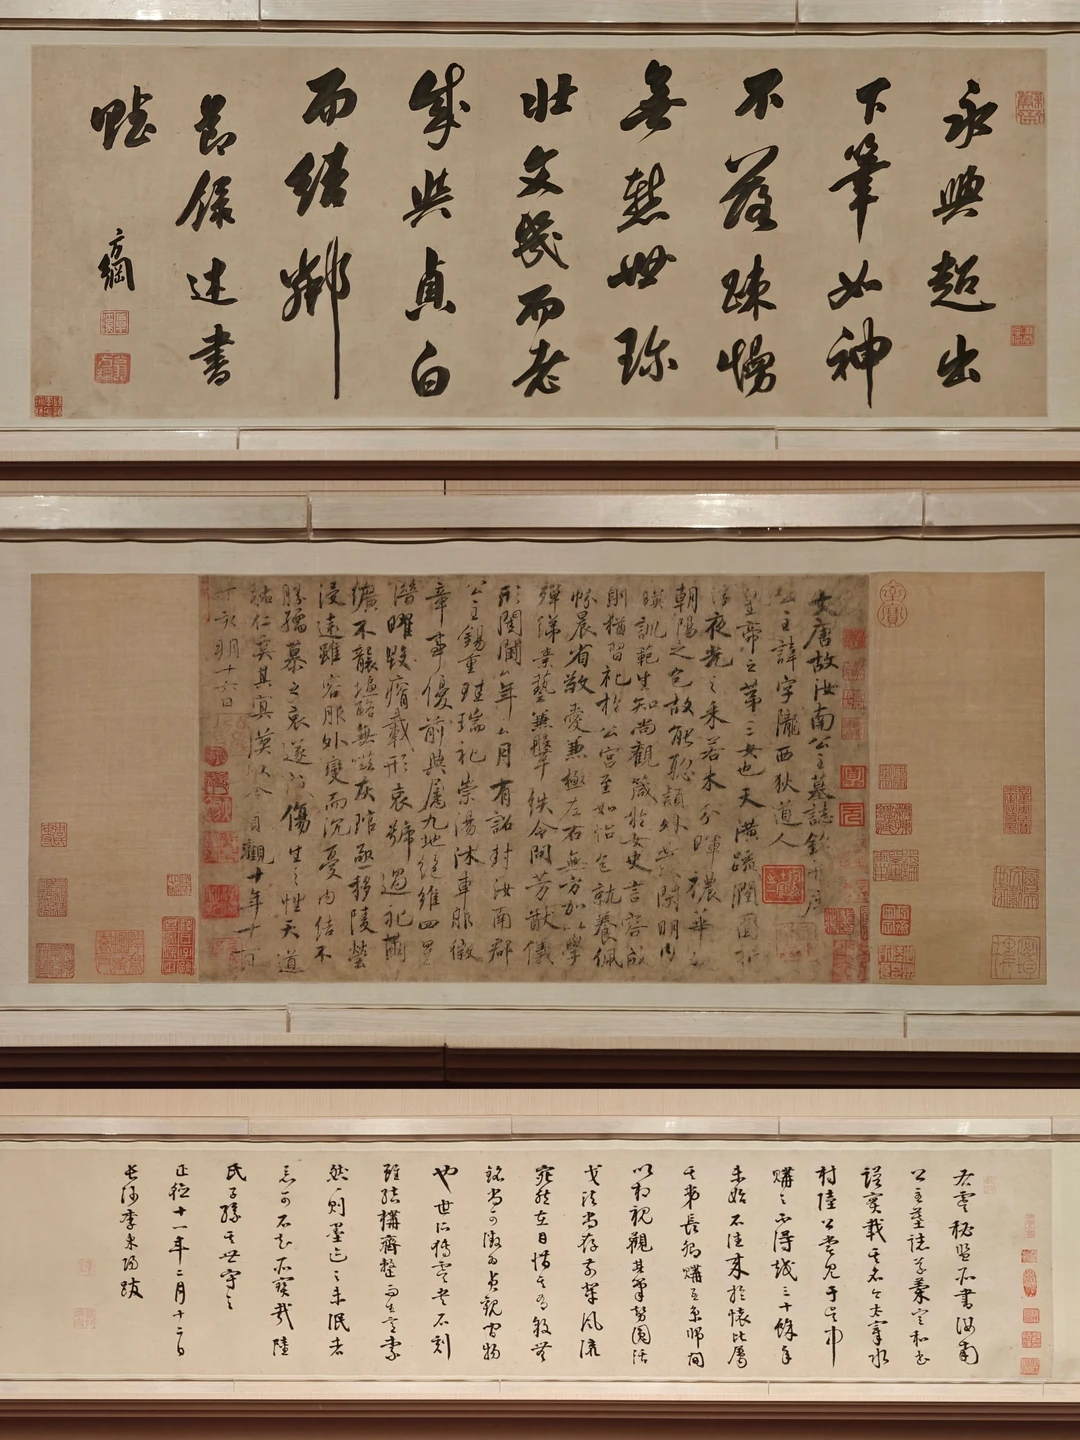 永興超出
下筆如神
不落疎慢
無慙世珍
壯文幾而老
成與貞白
而結鄰
節錄述書
賦
方綱
大唐故汝南公主墓誌銘并序
公主諱字隴西狄道人
皇帝之第三女也天潢疏潤圓折
浮夜光之采若木分暉穠華
朝陽之色故能聰穎外
閑明內
暎訓範生知尚觀箴於女史言容成
則猶習礼於公宮至如怡色就養佩
帉晨省敬愛兼極左右無方加以學
殫綈素藝兼鞶紩令問芳猷儀
形閨閫年月有詔封汝南郡
公主錫重珪瑞礼崇湯沐車服徽
章事優前典屬九地絕維四星
潛曜毀瘠載形哀號過礼繭
纊不襲塩酪無嗞灰琯亟移陵塋
浸遠雖容服外變而沉憂內結不
勝孺慕之哀遂成傷生之性天道
祐仁奚其冥漠以今貞觀十年十一月
丁亥朔十六日
右虞秘監所書汝南
公主墓誌草藁宣和書
譜實載其名今太宰水
村陸公嘗見于吳中
購之不得越三十餘年
未始不往來於懷比屬
其弟長卿購至京邸間
以相視觀其筆勢圓活
戈法尚存前輩風流
宛然在目惜其為殺
銘尚可徵為貞觀間物
也世所傳虞書石刻
雖結構齊整而生意索
然則墨迹之未泯者
烏可不知所寶哉陸
氏子孫其世守之
正德十一年二月十二日
長沙李東陽跋